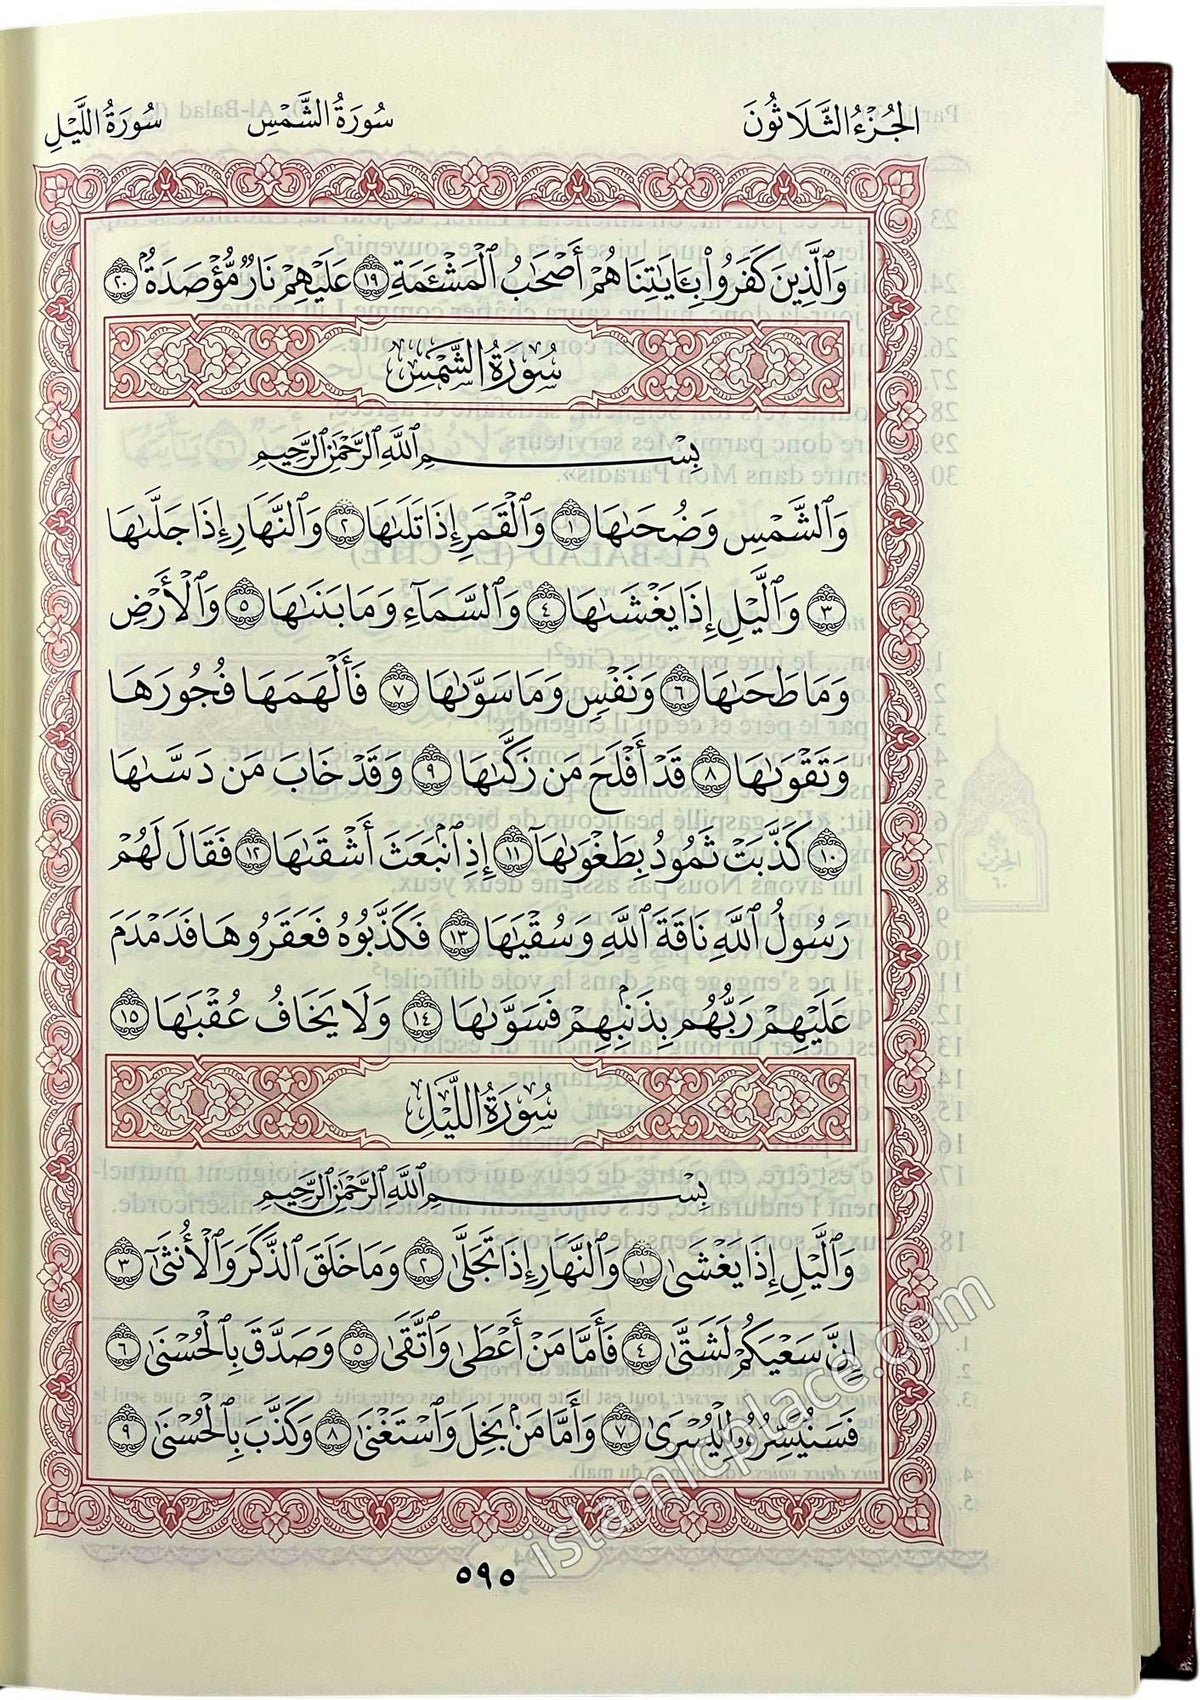 الجُزْءُ الثَّلَاثُونَ سُورَةُ الشَّمْسِ سُورَةُ اللَّيْلِ
وَٱلَّذِينَ كَفَرُوا۟ بِـَٔايَـٰتِنَا هُمْ أَصْحَـٰبُ ٱلْمَشْـَٔمَةِ ١٩ عَلَيْهِمْ نَارٌ مُّؤْصَدَةٌۢ ٢٠
سُورَةُ الشَّمْسِ
بِسْمِ ٱللَّهِ ٱلرَّحْمَـٰنِ ٱلرَّحِيمِ
وَٱلشَّمْسِ وَضُحَىٰهَا ١ وَٱلْقَمَرِ إِذَا تَلَىٰهَا ٢ وَٱلنَّهَارِ إِذَا جَلَّىٰهَا
٣ وَٱلَّيْلِ إِذَا يَغْشَىٰهَا ٤ وَٱلسَّمَآءِ وَمَا بَنَىٰهَا ٥ وَٱلْأَرْضِ
وَمَا طَحَىٰهَا ٦ وَنَفْسٍ وَمَا سَوَّىٰهَا ٧ فَأَلْهَمَهَا فُجُورَهَا
وَتَقْوَىٰهَا ٨ قَدْ أَفْلَحَ مَن زَكَّىٰهَا ٩ وَقَدْ خَابَ مَن دَسَّىٰهَا
١٠ كَذَّبَتْ ثَمُودُ بِطَغْوَىٰهَآ ١١ إِذِ ٱنۢبَعَثَ أَشْقَىٰهَا ١٢ فَقَالَ لَهُمْ
رَسُولُ ٱللَّهِ نَاقَةَ ٱللَّهِ وَسُقْيَـٰهَا ١٣ فَكَذَّبُوهُ فَعَقَرُوهَا فَدَمْدَمَ
عَلَيْهِمْ رَبُّهُم بِذَنۢبِهِمْ فَسَوَّىٰهَا ١٤ وَلَا يَخَافُ عُقْبَـٰهَا ١٥
سُورَةُ اللَّيْلِ
بِسْمِ ٱللَّهِ ٱلرَّحْمَـٰنِ ٱلرَّحِيمِ
وَٱلَّيْلِ إِذَا يَغْشَىٰ ١ وَٱلنَّهَارِ إِذَا تَجَلَّىٰ ٢ وَمَا خَلَقَ ٱلذَّكَرَ وَٱلْأُنثَىٰٓ ٣
إِنَّ سَعْيَكُمْ لَشَتَّىٰ ٤ فَأَمَّا مَنْ أَعْطَىٰ وَٱتَّقَىٰ ٥ وَصَدَّقَ بِٱلْحُسْنَىٰ ٦
فَسَنُيَسِّرُهُۥ لِلْيُسْرَىٰ ٧ وَأَمَّا مَنۢ بَخِلَ وَٱسْتَغْنَىٰ ٨ وَكَذَّبَ بِٱلْحُسْنَىٰ ٩
٥٩٥
islamicplace.com